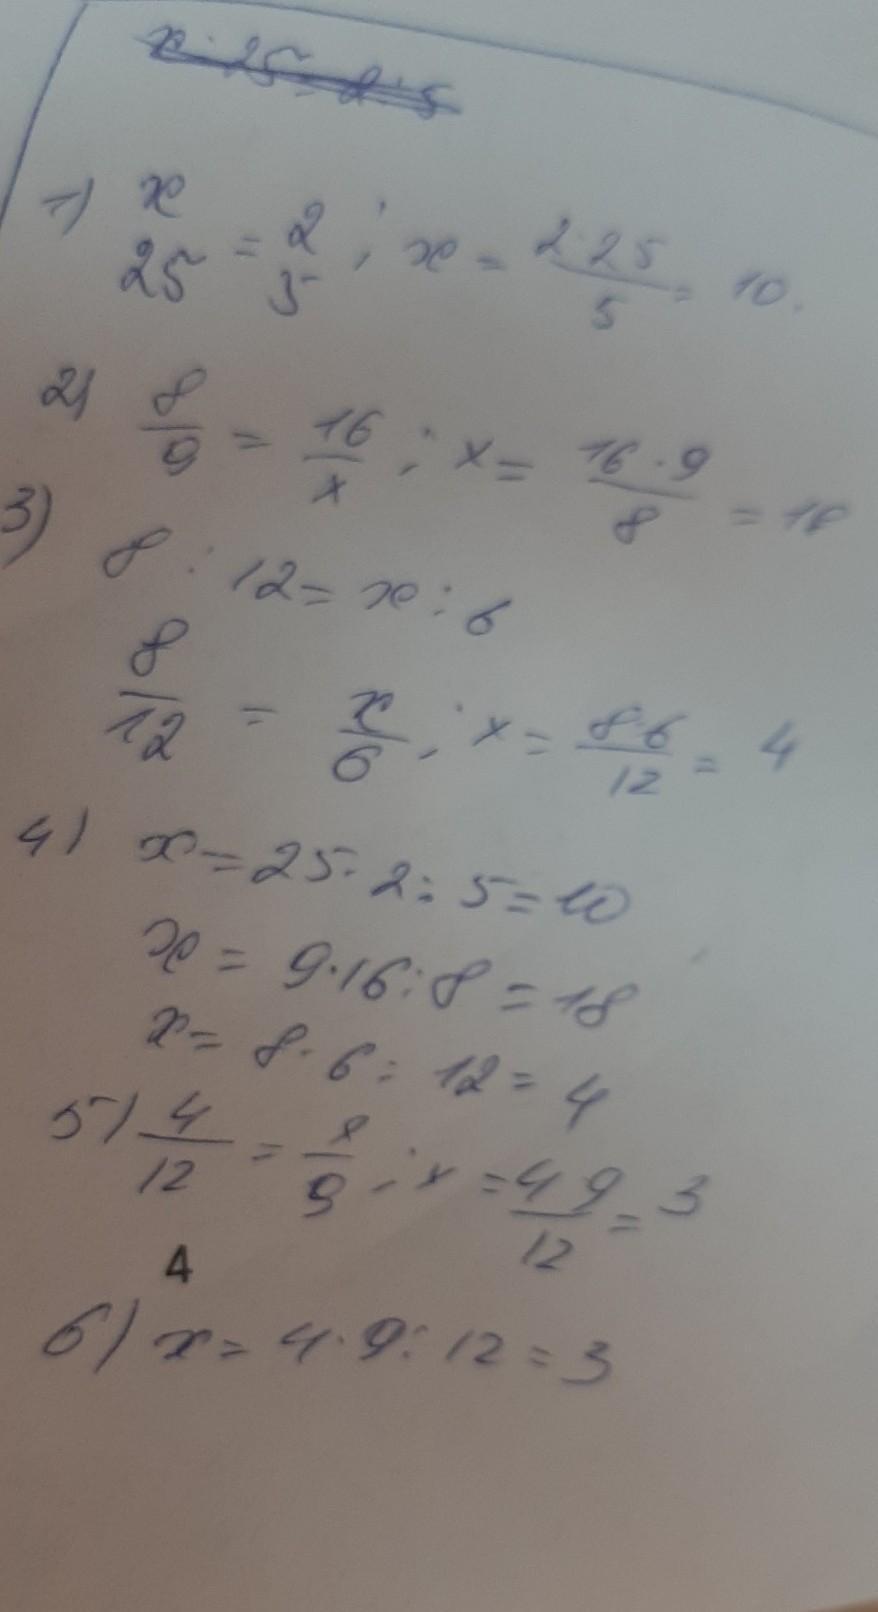 x : 25 = 2 : 5
1) x/25 = 2/5 ; x = 2·25/5 = 10.
2) 8/9 = 16/x ; x = 16·9/8 = 18
3) 8 : 12 = x : 6
8/12 = x/6 ; x = 8·6/12 = 4
4) x = 25·2:5 = 10
x = 9·16:8 = 18
x = 8·6:12 = 4
5) 4/12 = x/9 ; x = 4 9/12 = 3
4
6) x = 4·9:12 = 3